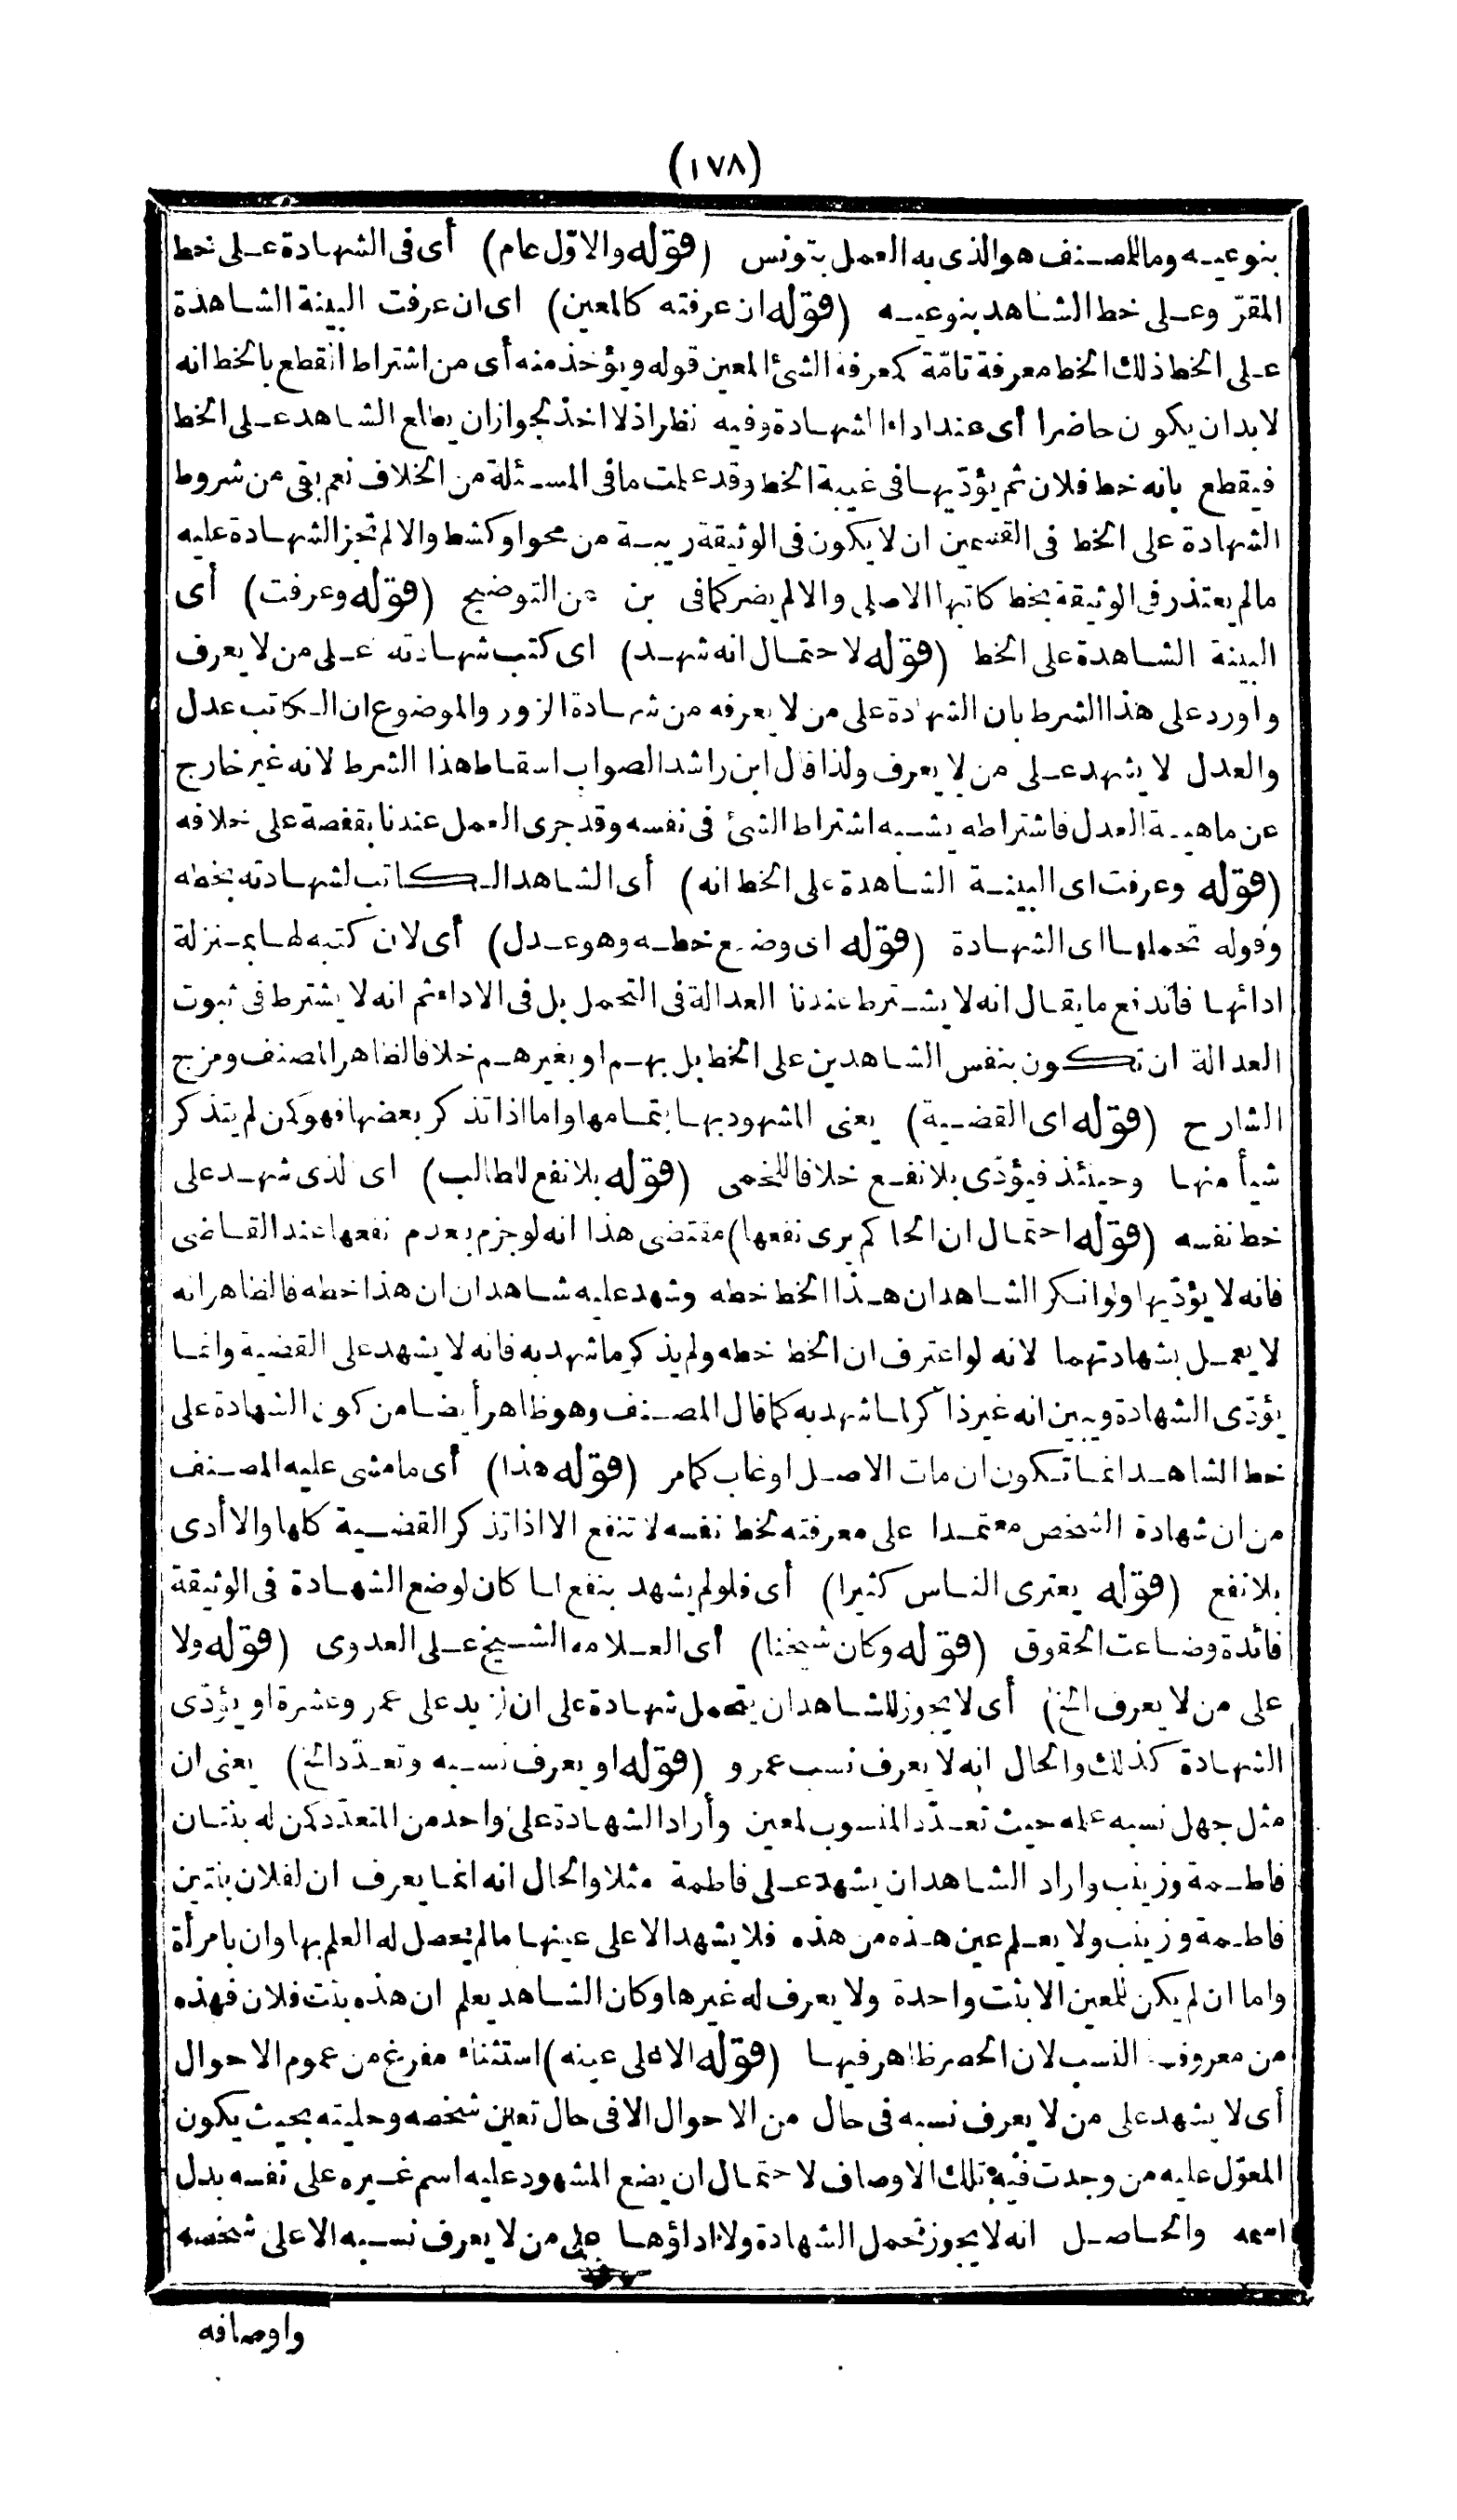 (١٧٨)
بنوعيه وما للمصنف هو الذى به العمل بتونس (قوله والاوّل عام) أى فى الشهادة على خط
المقرّ وعلى خط الشاهد بنوعيه (قوله ان عرفته كالمعين) اى ان عرفت البينة الشاهدة
على الخط ذلك الخط معرفة تامّة كمعرفة الشئ المعين قوله ويؤخذ منه أى من اشتراط القطع بالخط انه
لابد ان يكون حاضرا أى عند اداء الشهادة وفيه نظر اذ لا اخذ لجواز ان يطلع الشاهد على الخط
فيقطع بانه خط فلان ثم يؤدّيها فى غيبة الخط وقد علمت ما فى المسئلة من الخلاف نعم بقى من شروط
الشهادة على الخط فى القسمين ان لا يكون فى الوثيقة ريبة من محو او كشط والا لم تجز الشهادة عليه
مالم يعتذر فى الوثيقة بخط كاتبها الاصلى والا لم يضر كما فى بن عن التوضيح (قوله وعرفت) أى
البينة الشاهدة على الخط (قوله لاحتمال انه شهد) اى كتب شهادته على من لا يعرف
واورد على هذا الشرط بان الشهادة على من لا يعرفه من شهادة الزور والموضوع ان الكاتب عدل
والعدل لا يشهد على من لا يعرف ولذا قال ابن راشد الصواب اسقاط هذا الشرط لانه غير خارج
عن ماهية العدل فاشتراطه يشبه اشتراط الشئ فى نفسه وقد جرى العمل عندنا بقفصة على خلافه
(قوله وعرفت اى البينة الشاهدة على الخط انه) أى الشاهد الكاتب لشهادته بخطه
وقوله تحملها اى الشهادة (قوله اى وضع خطه وهو عدل) أى لان كتبه لها بمنزلة
ادائها فاندفع ما يقال انه لا يشترط عندنا العدالة فى التحمل بل فى الاداء ثم انه لا يشترط فى ثبوت
العدالة ان تكون بنفس الشاهدين على الخط بل بهم او بغيرهم خلافا لظاهر المصنف ومزج
الشارح (قوله اى القضية) يعنى المشهود بها بتمامها واما اذا تذكر بعضها فهو كمن لم يتذكر
شيأ منها وحينئذ فيؤدّى بلا نفع خلافا للخمى (قوله بلا نفع للطالب) اى لذى شهد على
خط نفسه (قوله احتمال ان الحاكم يرى نفعها) مقتضى هذا انه لو جزم بعدم نفعها عند القاضى
فانه لا يؤدّيها ولو انكر الشاهد ان هذا الخط خطه وشهد عليه شاهدان ان هذا خطه فالظاهر انه
لا يعمل بشهادتهما لانه لو اعترف ان الخط خطه ولم يذكر ما شهد به فانه لا يشهد على القضية وانما
يؤدّى الشهادة ويبين انه غير ذاكر لما شهد به كما قال المصنف وهو ظاهر أيضا من كون الشهادة على
خط الشاهد انما تكون ان مات الاصل او غاب كما مر (قوله هذا) أى ما مشى عليه المصنف
من ان شهادة الشخص معتمدا على معرفته لخط نفسه لا تنفع الا اذا تذكر القضية كلها والا أدى
بلا نفع (قوله يعترى الناس كثيرا) أى فلو لم يشهد بنفع لما كان لوضع الشهادة فى الوثيقة
فائدة وضاعت الحقوق (قوله وكان شيخنا) أى العلامه الشيخ على العدوى (قوله ولا
على من لا يعرف الخ) أى لا يجوز للشاهد ان يتحمل شهادة على ان لزيد على عمرو عشرة او يؤدّى
الشهادة كذلك والحال انه لا يعرف نسب عمرو (قوله او يعرف نسبه وتعدّد الخ) يعنى ان
مثل جهل نسبه علمه حيث تعدّد المنسوب لمعين وأراد الشهادة على واحد من المتعدّد كمن له بنتان
فاطمة وزينب واراد الشاهد ان يشهد على فاطمة مثلا والحال انه انما يعرف ان لفلان بنتين
فاطمة وزينب ولا يعلم عين هذه من هذه فلا يشهد الا على عينها مالم يحصل له العلم بها وان بامرأة
واما ان لم يكن للمعين الا بنت واحدة ولا يعرف له غيرها وكان الشاهد يعلم ان هذه بنت فلان فهذه
من معروف النسب لان الحصر ظاهر فيها (قوله الا على عينه) استثناء مفرغ من عموم الاحوال
أى لا يشهد على من لا يعرف نسبه فى حال من الاحوال الا فى حال تعين شخصه وحليته بحيث يكون
المعوّل عليه من وجدت فيه تلك الاوصاف لاحتمال ان يضع المشهود عليه اسم غيره على نفسه بدل
اسمه والحاصل انه لا يجوز تحمل الشهادة ولا اداؤها على من لا يعرف نسبه الا على شخصه
واوصافه